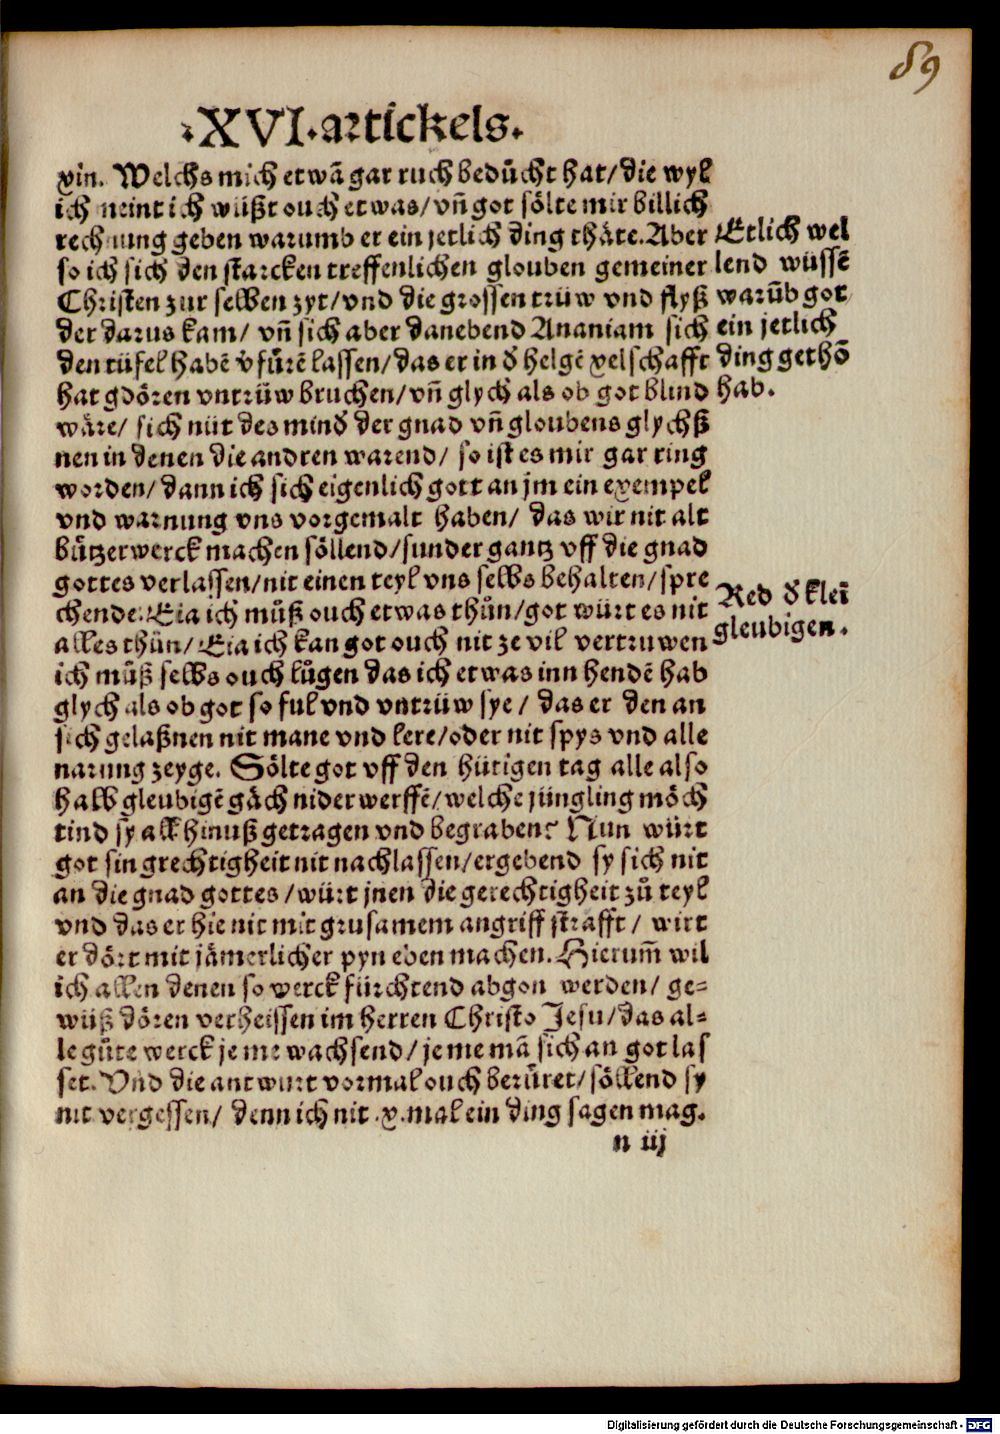 89
.XVI.artickels.
xin. Welchs mich etwā gar ruch bedücht hat/die wyl
ich meint ich wüßt ouch etwas/vñ got sölte mir billich
rechnung geben warumb er ein jetlich ding thäte. Aber
so ich sich den starcken treffenlichen glouben gemeiner
Christen zur selben zyt/vnd die grossen trüw vnd flyß
der darus kam/ vñ sich aber danebend Ananiam sich
den tüfel habē v̄fürē lassen/das er in d̄ helgē xelschafft
hat gdören vntrüw bruchen/vñ glych als ob got blind
wäre/ sich nüt des mind̄ der gnad vñ gloubens glychß
nen in denen die andren warend/ so ist es mir gar ring
worden/dann ich sich eigenlich gott an jm ein exempel
vnd warnung vns vorgemalt haben/ das wir nit alt
bützerwerck machen söllend/sunder gantz vff die gnad
gottes verlassen/nit einen teyl vns selbs behalten/spre
chende: Eia ich müß ouch etwas thůn/got würt es nit
alles thůn/ Eia ich kan got ouch nit ze vil vertruwen
ich můß selbs ouch lůgen das ich etwas inn hendē hab
glych als ob got so ful vnd vntrüw sye/ das er den an
sich gelaßnen nit mane vnd lere/oder nit spys vnd alle
narung zeyge. Sölte got vff den hütigen tag alle also
halb gleubigē gäch nider werffē/welche jüngling möch
tind sy all hinuß getragen vnd begraben? Nun würt
got sin grechtigheit nit nachlassen/ergebend sy sich nit
an die gnad gottes/würt jnen die gerechtigheit zů teyl
vnd das er hie nit mit grusamem angriff strafft/ wirt
er dört mit jämerlicher pyn eben machen. Hierum̄ wil
ich allen denen so werck fürchtend abgon werden/ ge=
wüß dören verheissen im herren Christo Jesu/das al=
le gůte werck je me wachsend/je me mā sich an got las
set. Vnd die antwurt vormal ouch berůret/söllend sy
nit vergessen/ denn ich nit .x. mal ein ding sagen mag.
n iij
Etlich wel
lend wüssē
warūb got
ein jetlich
ding gethō
hab.
Red d̄ kleī
gleubigen.
Digitalisierung gefördert durch die Deutsche Forschungsgemeinschaft - DFG